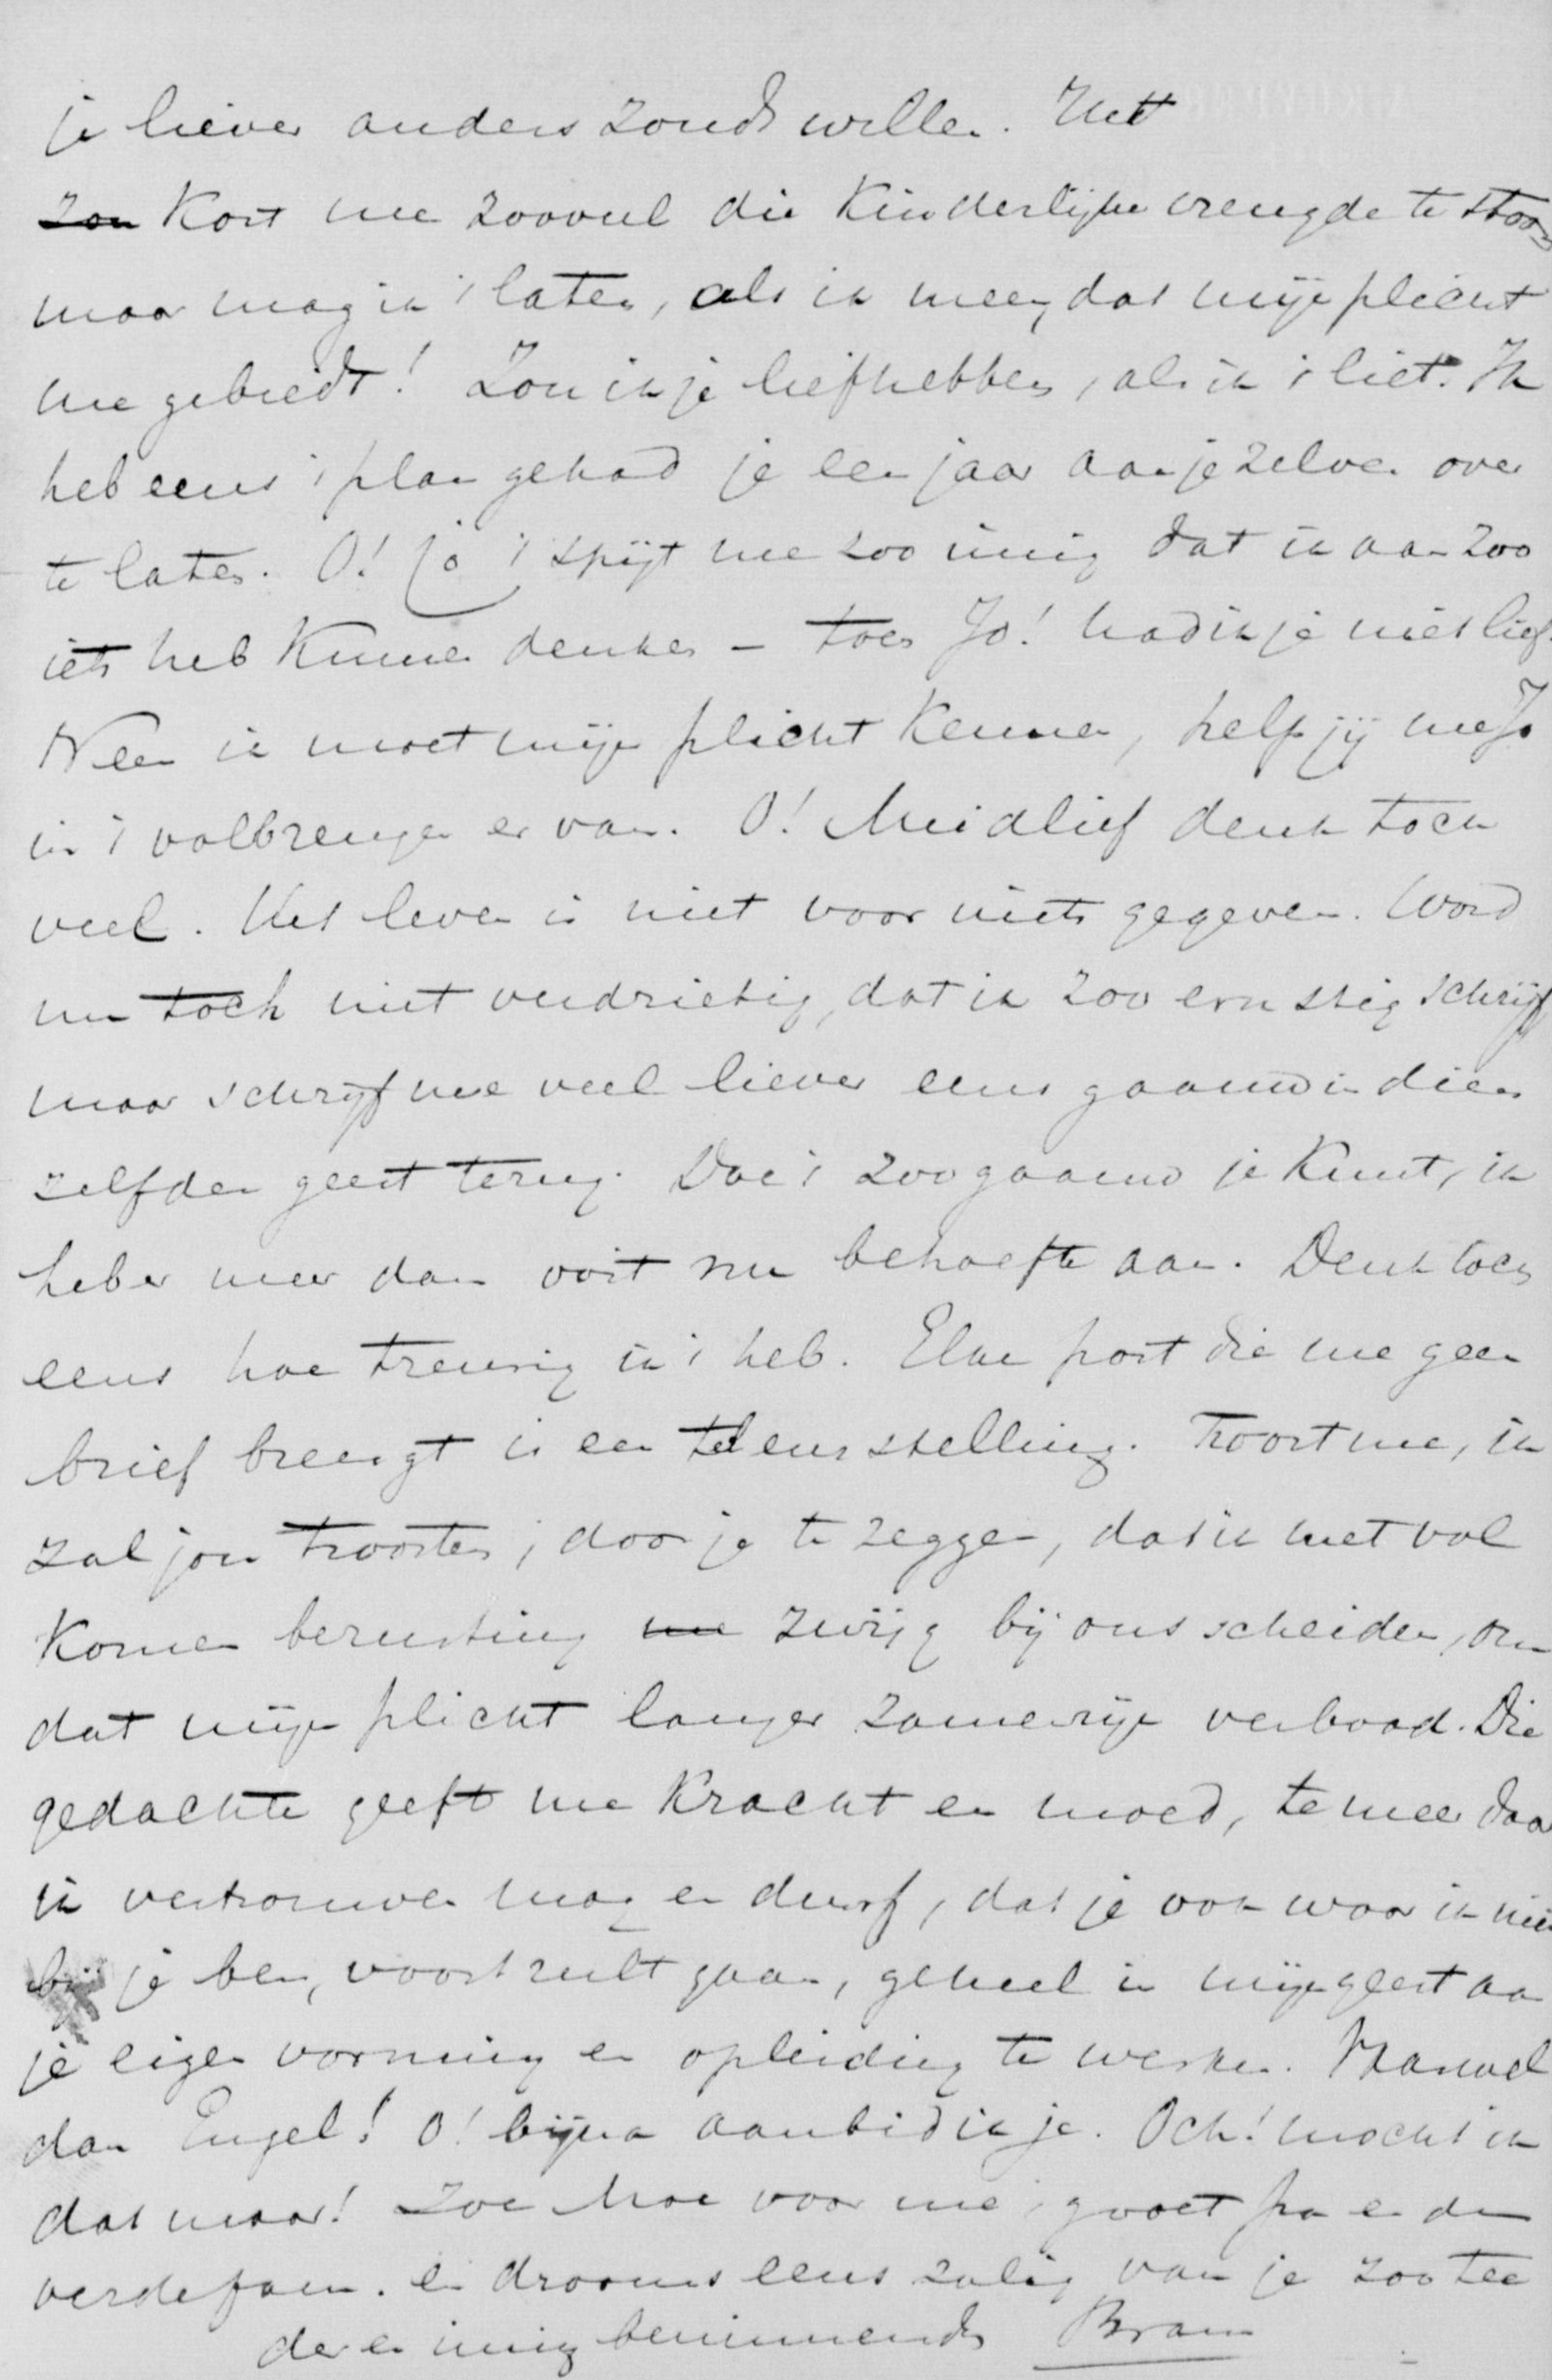 je liever anders zoudt willen. Het
zou kost me zooveel die kinderlijke vreugde te stooren
maar mag ik 't laten, als ik meen, dat mijn plicht
me gebiedt! Zou ik je liefhebben, als ik 't liet. Ik
heb eens 't plan gehad je een jaar aan je zelven over
te laten. O! Jo 't spijt me zoo innig dat ik aan zoo
iets heb kunnen denken – toen Jo! had ik je niet lief.
Neen ik moet mijn plicht kennen, help jij me Jo
in 't volbrengen er van. O! Meidlief denk toch
veel. Het leven is niet voor niets gegeven. Word
nu toch niet verdrietig, dat ik zoo ernstig schrijf,
maar schrijf me veel liever eens gaauw in dien
zelfden geest terug. Doe 't zoo gaauw je kunt, ik
heb er meer dan ooit nu behoefte aan. Denk toch
eens hoe treurig ik 't heb. Elke post die me geen
brief brengt is een teleurstelling. Troost me, ik
zal jou troosten, door je te zeggen, dat ik met vol
komen berusting me zwijg bij ons scheiden, om
dat mijn plicht langer zamenzijn verbood. Die
gedachte geeft me kracht en moed, te meer daar
ik vertrouwen mag en durf, dat je ook waar ik niet
bij je ben, voort zult gaan, geheel in mijn geest aan
je eigen vorming en opleiding te werken. Vaarwel
dan Engel! O! bijna aanbid ik je. Och! mocht ik
dat maar! Zoen Moe voor me, groet pa en de
verdefam. en droom eens zalig van je zoo tee
der en innig beminnende Bram